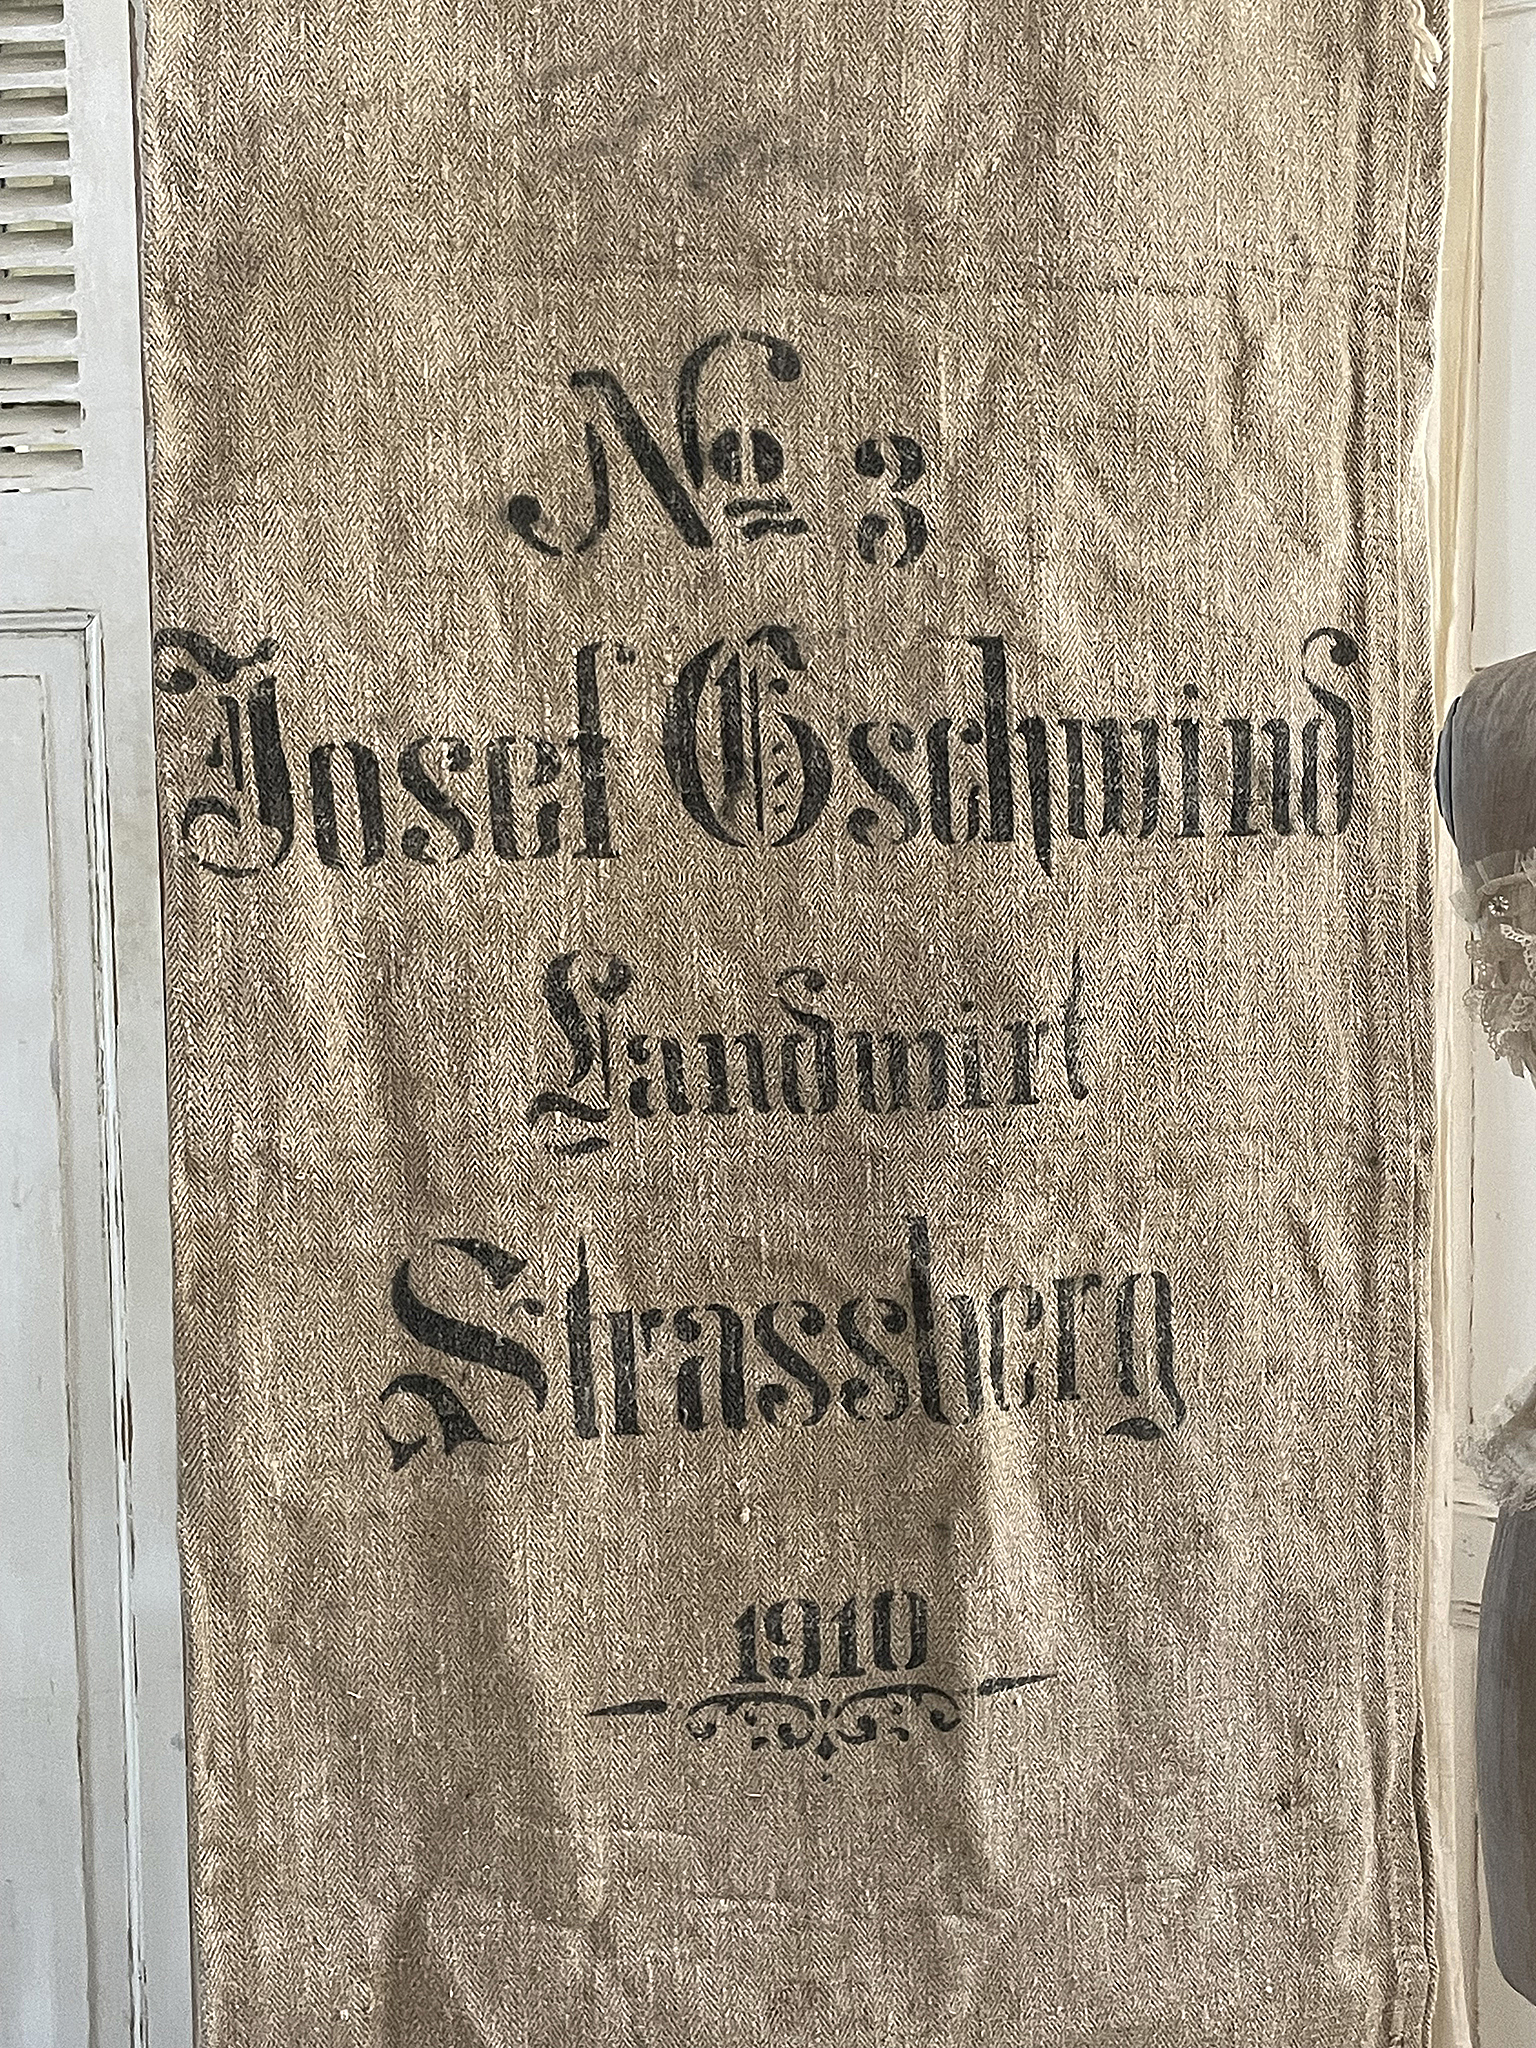 № 3
Josef Gschwind
Landwirt
Strassberg
1910